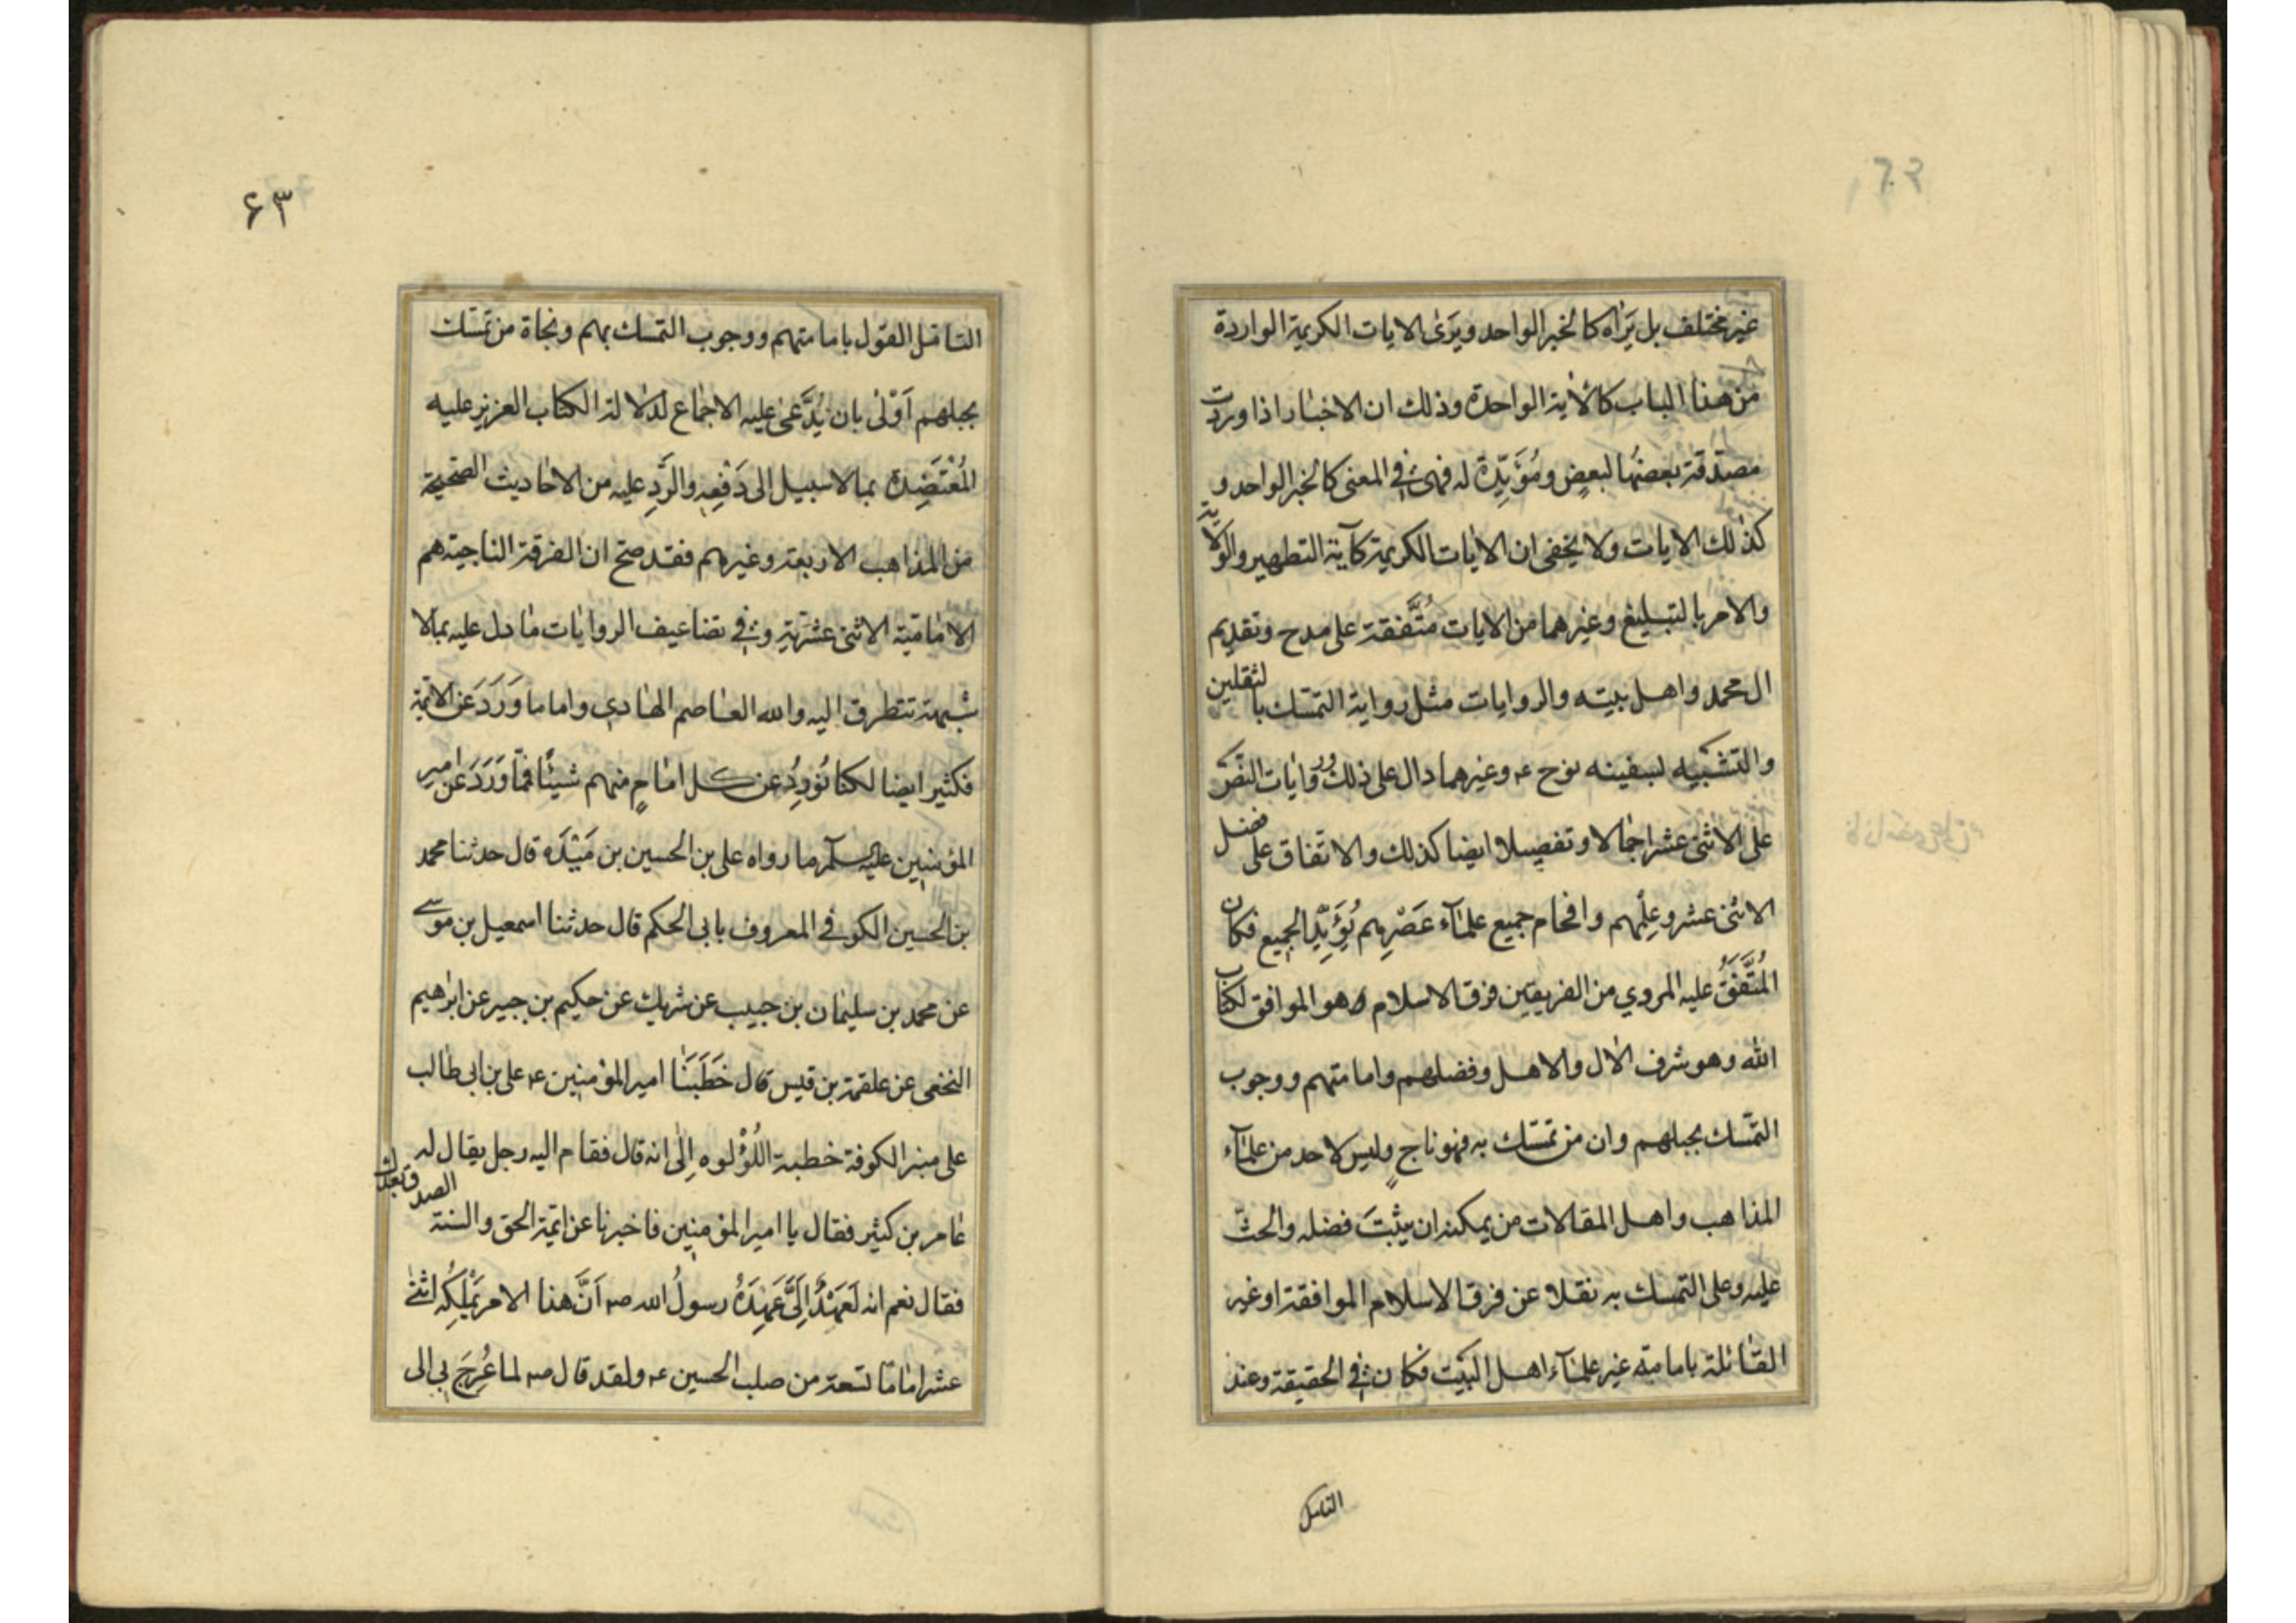 غير مختلف بل يَرَاه كالخبر الواحد ويَرَى الايات الكريمة الواردة
من هذا الباب كالاية الواحدة وذلك ان الاخبار اذا وردت
مصدّقة بعضها لبعضٍ ومُؤَيِّدة له فهى فى المعنى كالخبر الواحد و
كذلك الايات ولا يخفى ان الايات الكريمة كآية التطهير والولاية
والامر بالتبليغ وغيرهما من الايات مُتَّفقة على مدح وتقديم
ال محمد واهل بيته والروايات مثل رواية التمسّك بالثقلين
والتشبيه لسفينه نوح ع وغيرهما دال على ذلك وروايات النصّ
على الاثنى عشر اجمالا وتفصيلا ايضا كذلك والاتفاق على فضل
الاثنى عشر وعِلْمِهم وافحام جميع علمآء عَصْرِهم يُؤَيِّد الجميع فكان
المُتَّفَقُ عليه المروي من الفريقين فرق الاسلام وهو الموافق لكتاب
الله وهو شرف الال والاهل وفضلهم وامامتهم ووجوب
التمّسك بحبلهم وان من تمسّك به فهو ناجٍ وليس لاحد من علمآء
المذاهب واهل المقالات من يمكنه ان يثبتَ فضله والحثّ
عليه وعلى التمسك به نقلا عن فرق الاسلام الموافقة او غير
القائلة بامامته غير علمآء اهل البَيت فكان فى الحقيقة وعند
التامل
۶۳
التامّل القول بامامتهم ووجوب التمسك بهم ونجاة من تمسّك
بحبلهم اَوْلى بان يُدَّعى عليه الاجماع لدلالة الكتاب العزيز عليه
المُعْتَضِدة بما لا سبيل الى دَفْعِه والرَّدِ عليه من الاحاديث الصّحيحة
من المذاهب الاربعة وغيرهم فقد صح ان الفرقة الناجية هم
الاماميّة الاثنى عشريّة وفى تضاعيف الروايات ما دل عليه بما لا
شبهة تتطرق اليه والله العاصم الهادي واما ما وَرَدَ عن الائمّة
فكثير ايضا لكنا نُورِدُ عن كل امامٍ منهم شيئًا فممّا وَرَدَ عن امير
المؤمنين عليه السلام ما رواه على بن الحسين بن مَنْدَه قال حدثنا محمد
بن الحسين الكوفى المعروف بابى الحكم قال حدثنا اسمعيل بن موسى
عن محمد بن سليمان بن حبيب عن شريك عن حكيم بن جبير عن ابرهيم
النخعى عن علقمة بن قيس قال خَطَبَنَا امير المؤمنين ع على بن ابى طالب
على منبر الكوفة خطبة اللُؤْلوه اِلى انه قال فقام اليه رجل يقال له
عامر بن كثير فقال يا امير المؤمنين فاخبرنا عن ائمة الحق والسنة الصدق بعدك
فقال نعم انه لَعَهْدٌ اِلَىَّ عَهِدَهُ رسولُ الله ص اَنَّ هذا الامر يَمْلِكُه اثنى
عشر امامًا تسعة من صلب الحسين ع ولقد قال ص لما عُرِجَ بي الى